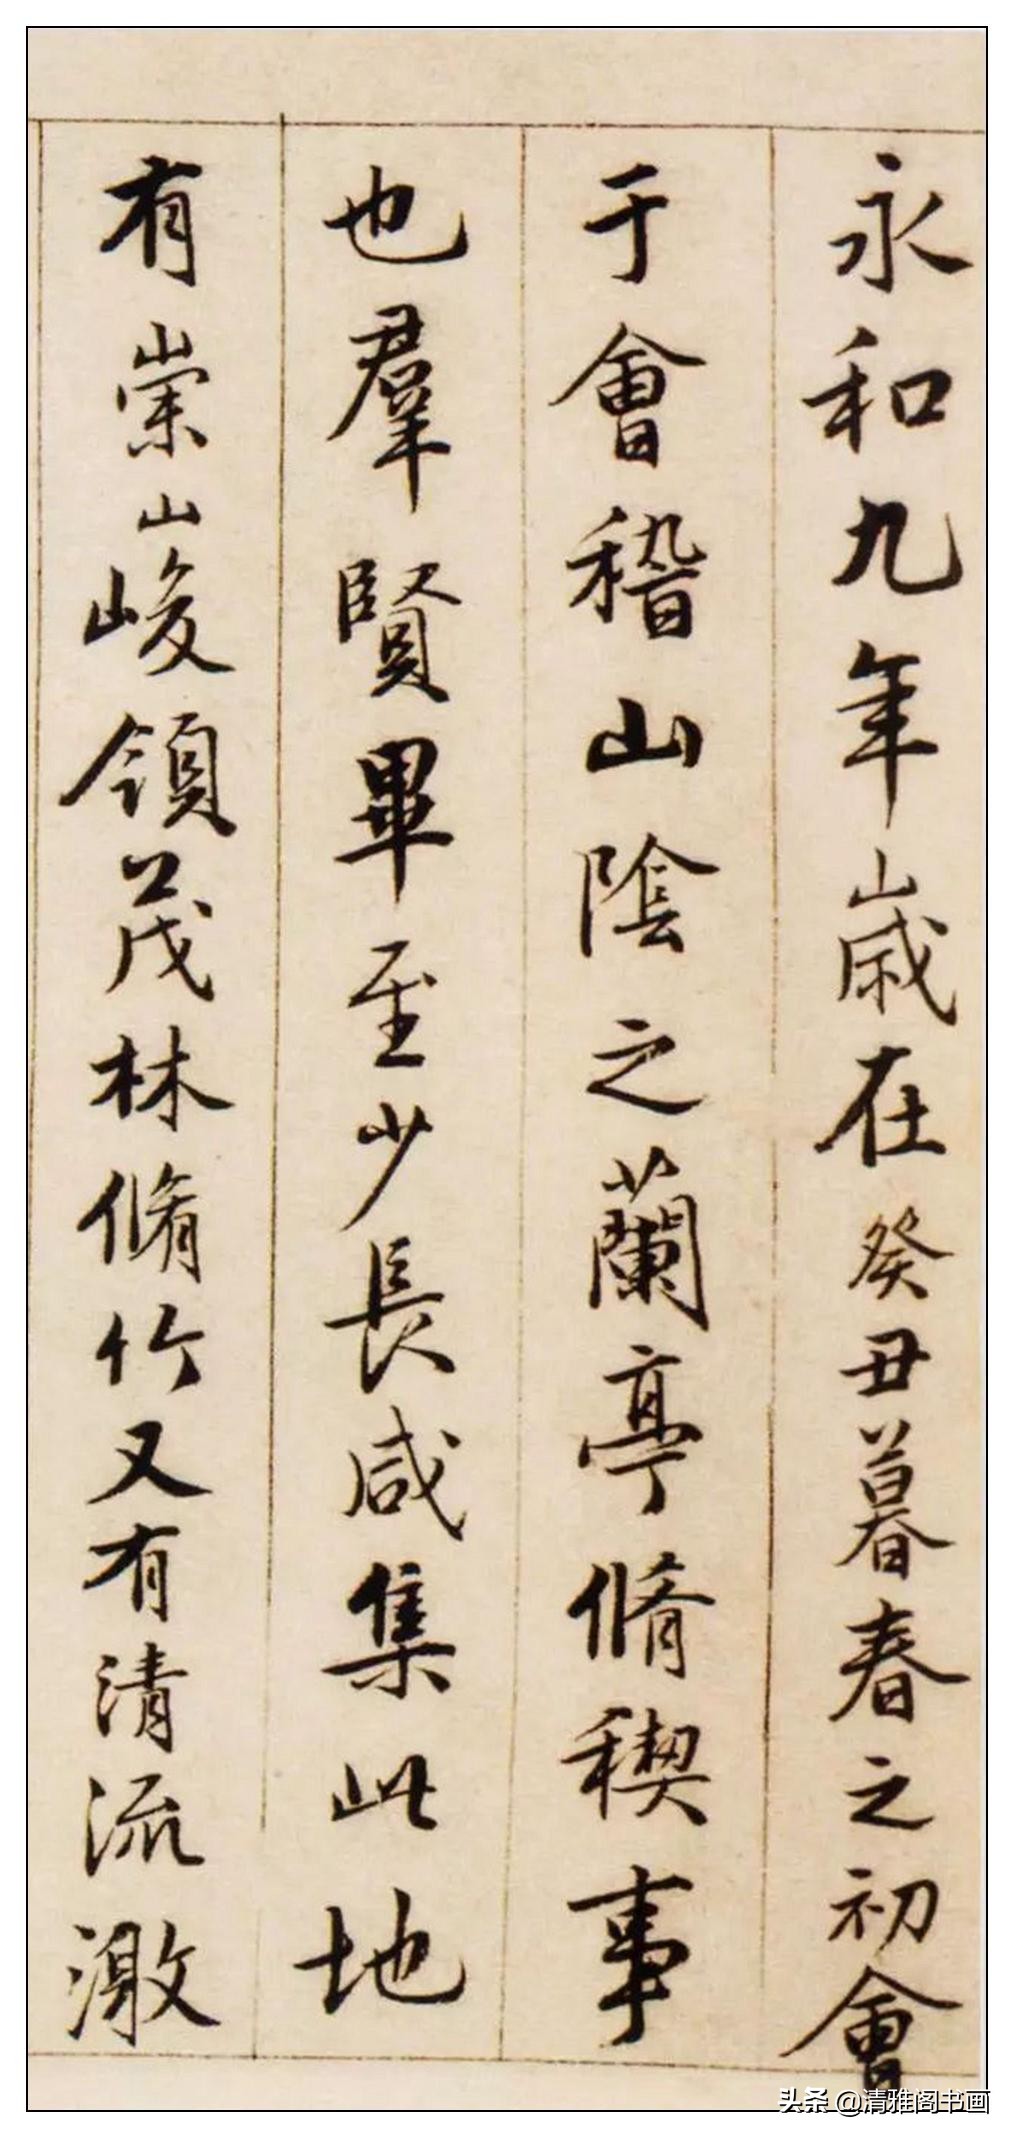 永和九年歲在癸丑暮春之初會
于會稽山陰之蘭亭脩稧事
也羣賢畢至少長咸集此地
有崇山峻領茂林脩竹又有清流激
头条 @清雅阁书画